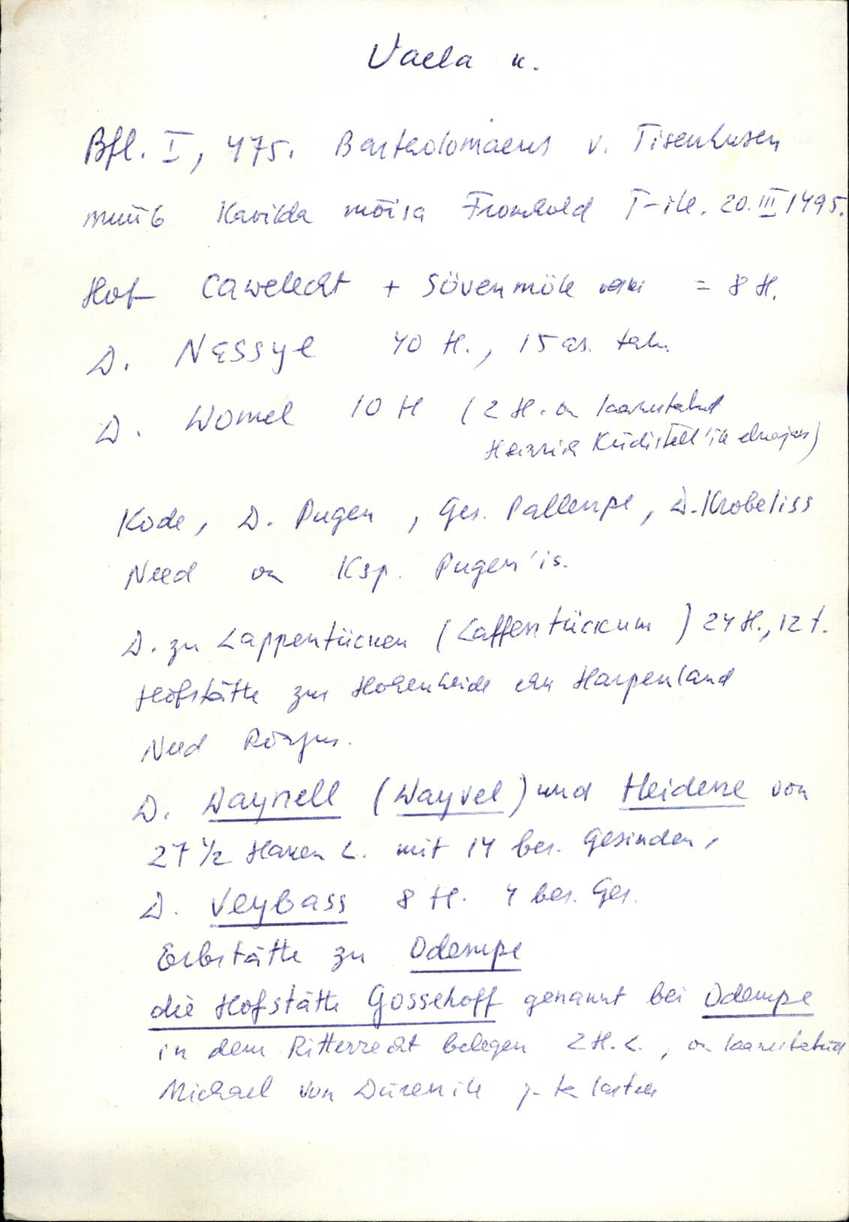 Vaela k.
Bfl. I, 475. Bartholomaeus v. Tisenhusen
müüb Kavilda mõisa Fromhold T-ile. 20. III 1495.
Hof Cawelecht + Sövenmöle = 8 H.
D. Nessyel 40 H., 15 as. talu.
D. Womel 10 H (2 H. on laenutatud
Heinrich Küdistell'ile eluajaks)
Kode, D. Pugen, Ges. Pallenpe, D. Krobeliss
Need on Ksp. Pugen'is.
D. zu Lappentücken (Laffentückum) 24 H., 12 t.
Hofstätte zur Hohenheide Harpenland
Need Rõngus.
D. Waynell (Wayvel) und Heidene von
27 1/2 Haken L. mit 14 bes. Gesinden,
D. Veybass 8 H. 4 bes. Ges.
Erbstätte zu Odempe
die Hofstätte Gossehoff genannt bei Odempe
in dem Ritterrecht belegen 2 H. L., on laenutatud
Michael von Düren ile j-te lastele